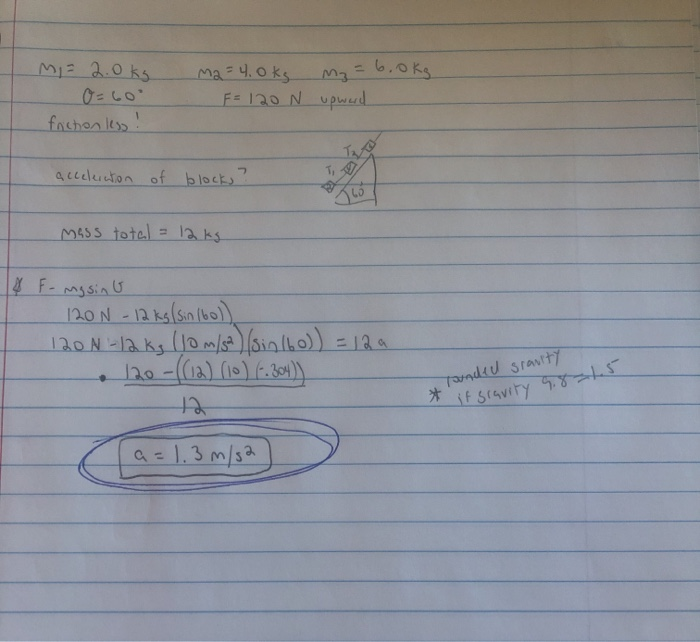 m1 = 2.0 kg m2 = 4.0 kg m3 = 6.0 kg
θ = 60° F = 120 N upward
frictionless!
T2
T1
acceleration of blocks?
60
mass total = 12 kg
F - mg sin θ
120 N - 12 kg (sin(60))
120 N - 12 kg (10 m/s²) (sin(60)) = 12a
• 120 - ((12) (10) (-.304))
12
rounded gravity
* if gravity 9.8 = 1.5
a = 1.3 m/s²